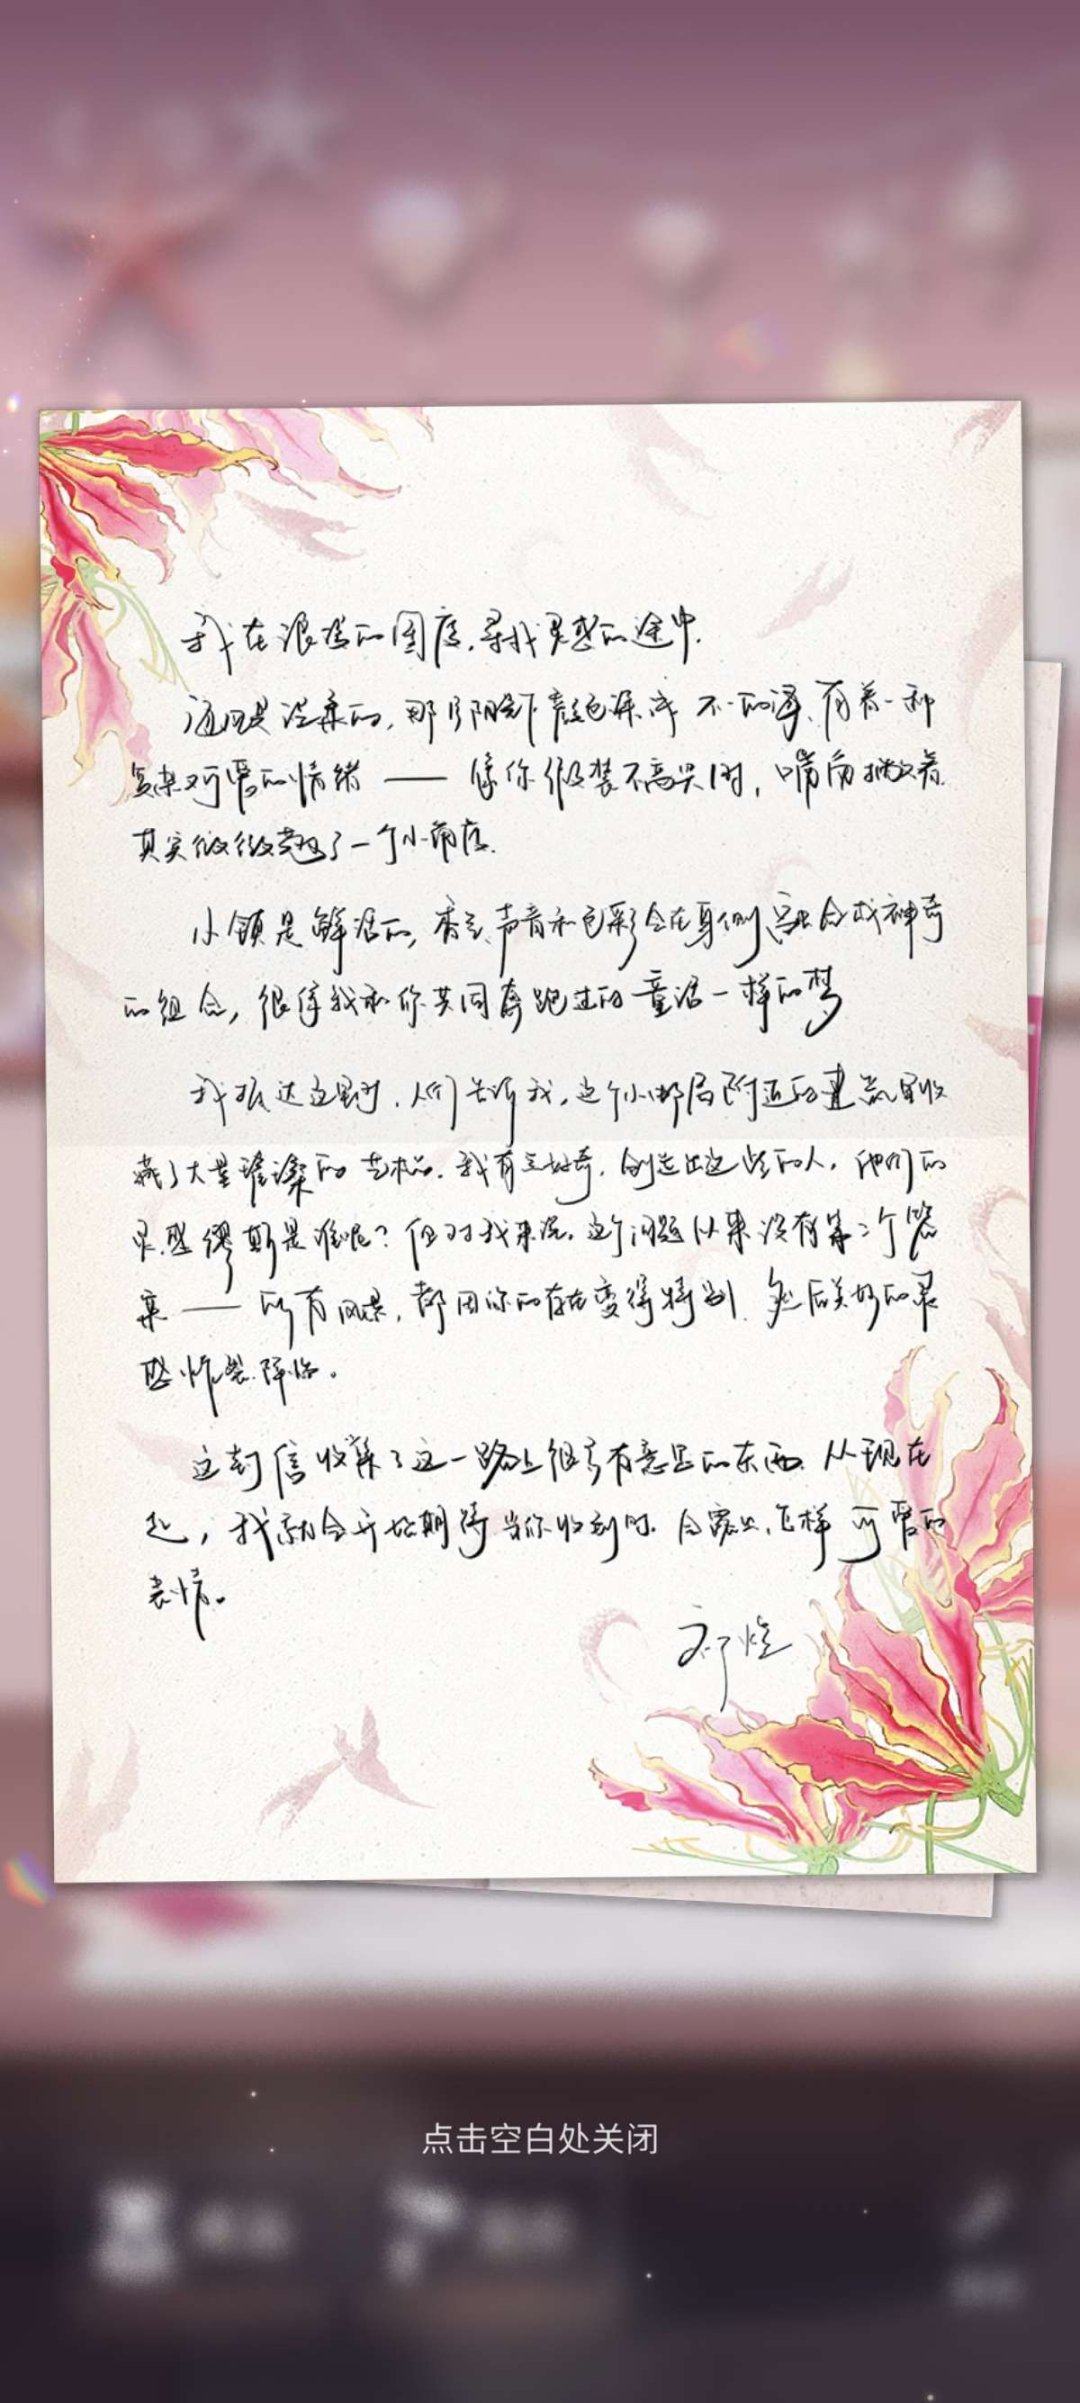 我在浪漫的国度,寻找灵感的途中.
海风是温柔的,
有着一种
复杂又可爱的情绪——像你假装不高兴时,嘴角撇着.
其实微微翘了一个小角度.
小镇是鲜活的,香气、声音和色彩会在身侧融合成神奇
的组合,很像我和你共同奔跑过的童话一样的梦
我抵达这里时,人们告诉我,这个小邮局附近的建筑里收
藏了大量璀璨的艺术品.我有些好奇,创造出这些的人,他们的
灵感缪斯是谁呢?但对我来说,这个问题从来没有第二个答
案——所有风景,都因你的存在变得特别.然后美好的灵
感炸裂降临。
这封信收集了这一路上很多有意思的东西.从现在
起,我就会开始期待当你收到时.会露出怎样可爱的
表情。
祁煜
点击空白处关闭